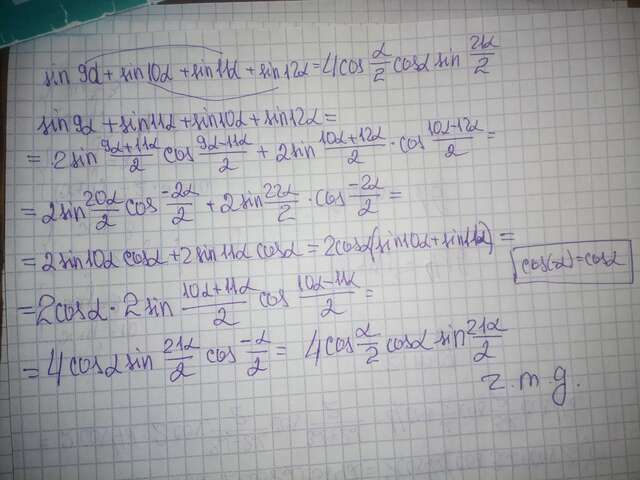 sin 9α + sin 10α + sin 11α + sin 12α = 4 cos α/2 cosα sin 21α/2
sin 9α + sin 11α + sin 10α + sin 12α =
= 2 sin (9α+11α)/2 cos (9α-11α)/2 + 2 sin (10α+12α)/2 · cos (10α-12α)/2 =
= 2 sin 20α/2 cos -2α/2 + 2 sin 22α/2 · cos -2α/2 =
= 2 sin 10α cosα + 2 sin 11α cosα = 2cosα(sin 10α + sin 11α) =
cos(-α) = cosα
= 2cosα · 2 sin (10α+11α)/2 cos (10α-11α)/2 =
= 4 cosα sin 21α/2 cos -α/2 = 4 cos α/2 cosα sin 21α/2
г.т.д.